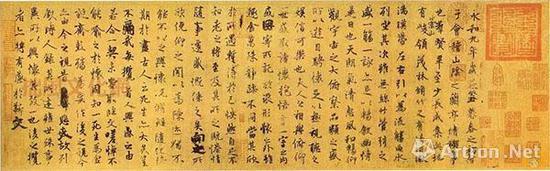 永和九年歲在癸丑暮春之初會
于會稽山陰之蘭亭脩禊事
也群賢畢至少長咸集此地
有崇山峻領茂林脩竹又有清流激
湍暎帶左右引以為流觴曲水
列坐其次雖無絲竹管弦之
盛一觴一詠亦足以暢敘幽情
是日也天朗氣清惠風和暢仰
觀宇宙之大俯察品類之盛
所以遊目騁懷足以極視聽之
娛信可樂也夫人之相與俯仰
一世或取諸懷抱悟言一室之內
或因寄所託放浪形骸之外雖
趣舍萬殊靜躁不同當其欣
於所遇暫得於己怏然自足不
知老之將至及其所之既惓情
隨事遷感慨係之矣向之所
欣俛仰之閒以為陳跡猶不
能不以之興懷況脩短隨化終
期於盡古人云死生亦大矣豈
不痛哉每攬昔人興感之由
若合一契未嘗不臨文嗟悼不
能喻之於懷固知一死生為虛
誕齊彭殤為妄作後之視今
亦由今之視昔悲夫故列
敘時人錄其所述雖世殊事
異所以興懷其致一也後之攬
者亦將有感於斯文
Artron.Net